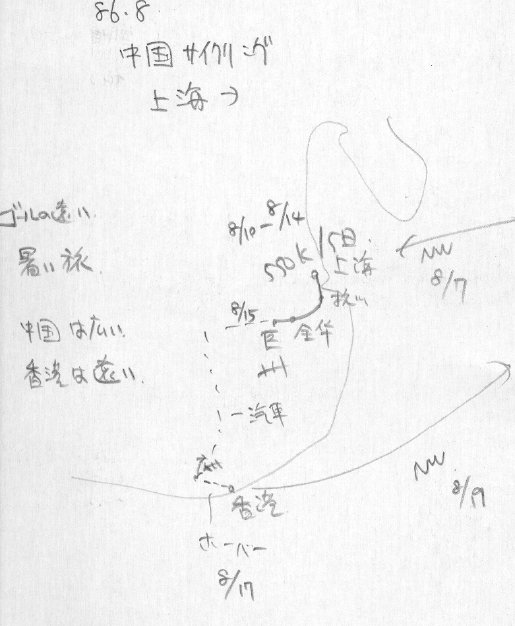 86.8
中国 サイクリング
上海→
ゴールの遠い
暑い旅
中国は広い.
香港は遠い.
8/10-8/14
550K/5日.
上海
8/7
杭州
8/15
金华
汽車
広州
香港
8/19
ホーバー
8/17